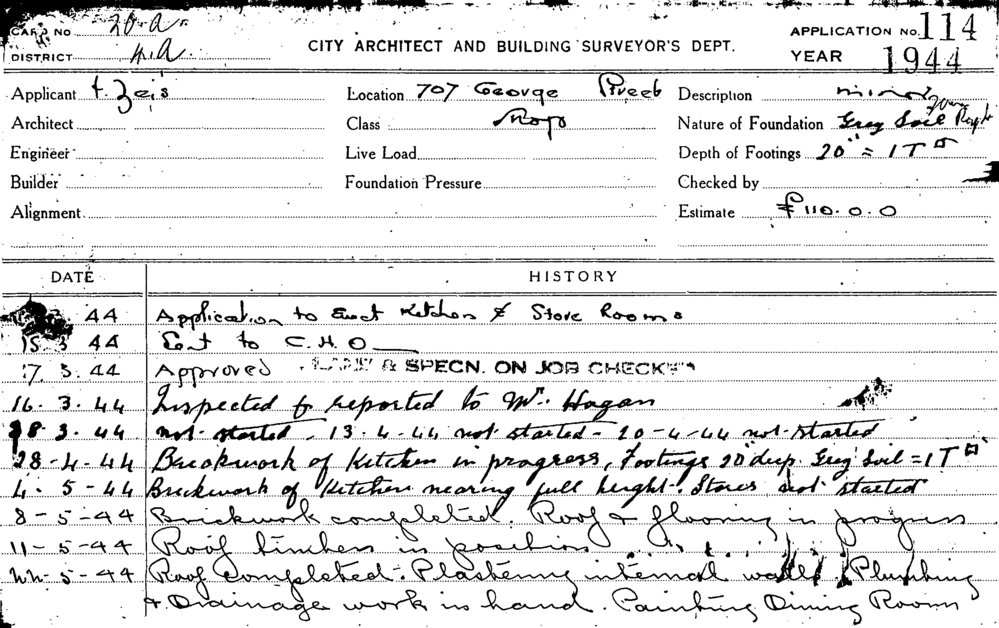 CARD NO 20-A
DISTRICT
CITY ARCHITECT AND BUILDING SURVEYOR'S DEPT.
APPLICATION NO. 114
YEAR 1944
Applicant t. Zeis Location 707 George Street Description minor
Architect Class Shop Nature of Foundation Grey Soil
Engineer Live Load Depth of Footings 20" = 1 T
Builder Foundation Pressure Checked by
Alignment Estimate £110.0.0
DATE HISTORY
3 44 Application to Erect Kitchen & Store Rooms
15 3 44 Sent to C.H.O
17. 3. 44 Approved & SPECN. ON JOB CHECKED
16. 3. 44 Inspected & reported to Mr. Hogan
28. 3. 44 not started - 13-4-44 not started - 20-4-44 not started
28-4-44 Brickwork of Kitchen in progress, Footings 20" deep. Grey Soil = 1 T
4. 5-44 Brickwork of Kitchen nearing full height. Stores not started
8-5-44 Brickwork completed. Roof & flooring in progress
11-5-44 Roof timbers in position
22-5-44 Roof Completed. Plastering internal walls Plumbing
& Drainage work in hand. Painting Dining Room